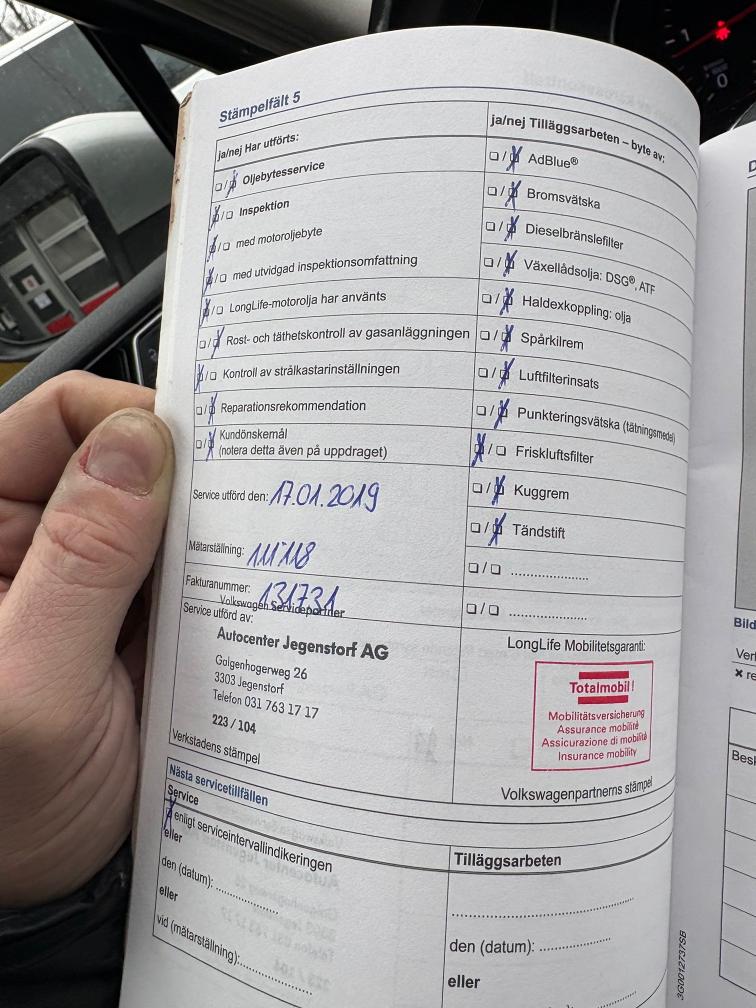 Stämpelfält 5
ja/nej Har utförts:
Oljebytesservice
Inspektion
med motoroljebyte
med utvidgad inspektionsomfattning
LongLife-motorolja har använts
Rost- och täthetskontroll av gasanläggningen
Kontroll av strålkastarinställningen
Reparationsrekommendation
Kundönskemål
(notera detta även på uppdraget)
Service utförd den: 17.01.2019
Mätarställning: 111'118
Fakturanummer: 131731
Volkswagen Servicepartner
Service utförd av:
Autocenter Jegenstorf AG
Galgenhogerweg 26
3303 Jegenstorf
Telefon 031 763 17 17
223 / 104
Verkstadens stämpel
ja/nej Tilläggsarbeten – byte av:
AdBlue®
Bromsvätska
Dieselbränslefilter
Växellådsolja: DSG®, ATF
Haldexkoppling: olja
Spårkilrem
Luftfilterinsats
Punkteringsvätska (tätningsmedel)
Friskluftsfilter
Kuggrem
Tändstift
LongLife Mobilitetsgaranti:
Totalmobil!
Mobilitätsversicherung
Assurance mobilité
Assicurazione di mobilità
Insurance mobility
Volkswagenpartnerns stämpel
Nästa servicetillfällen
Service
enligt serviceintervallindikeringen
eller
den (datum):
eller
vid (mätarställning):
Tilläggsarbeten
den (datum):
eller
3G0012737SB
Bild
1
0